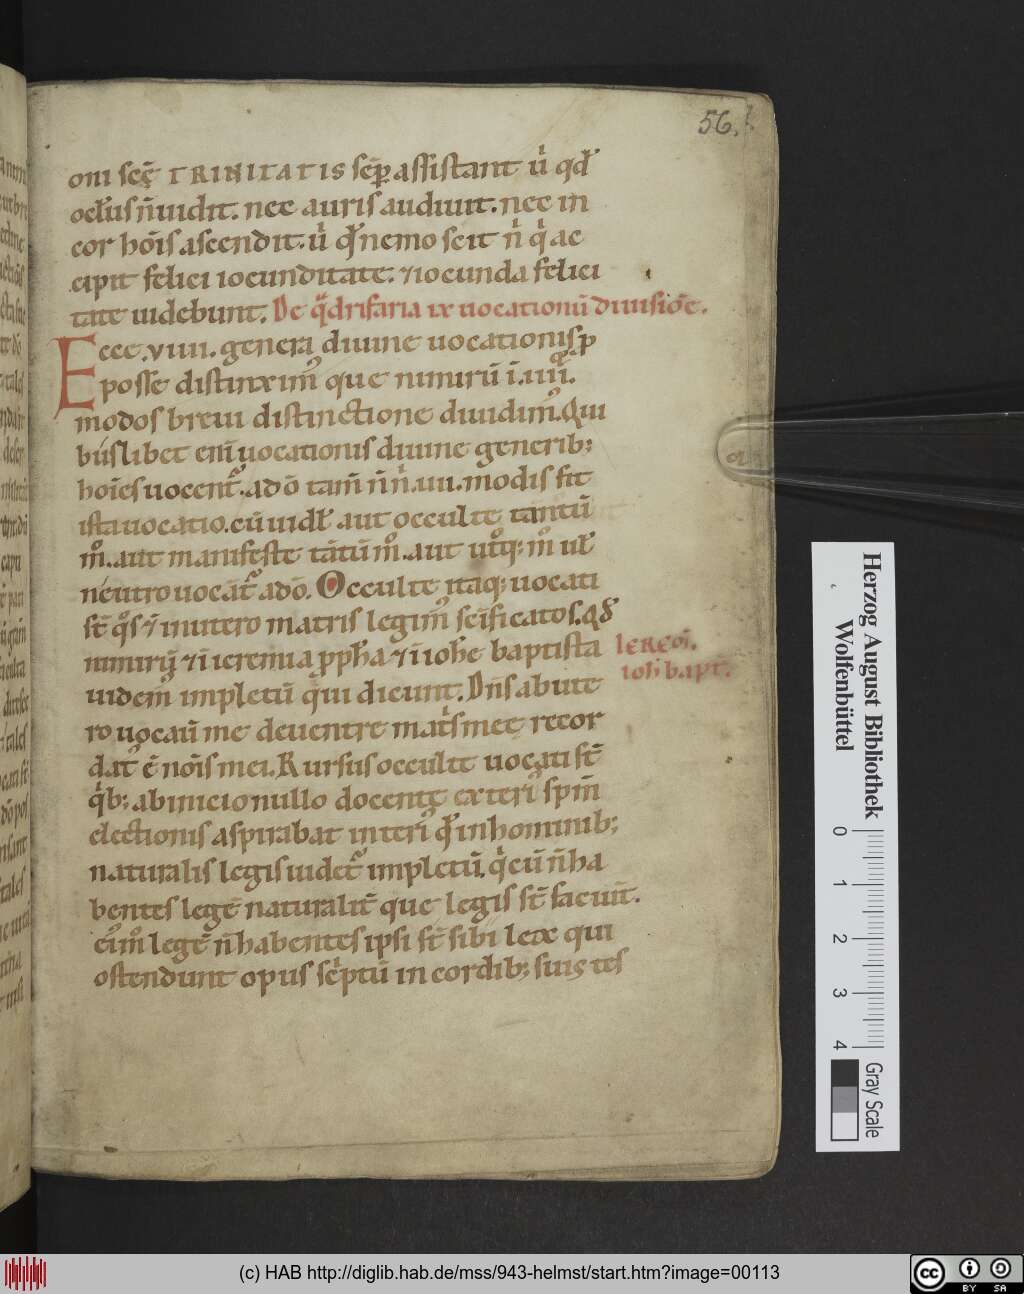 56.
oni sc̄ę TRINITATIS sēp assistant ů qđ
ocłus n̄ uidit. nec auris audiuit. nec in
cor hōis ascendit. ů qđ nemo scit n̊ q̊ ac
cipit felici iocunditate. ⁊ iocunda felici
tate uidebunt. De qͣdrifaria ix uocationū diuisiōe.
Ecce .viiii. genera diuine uocationis ꝓ
posse distinximꝰ que nimirū ī .iiiiᵒʳ.
modos breui distinctione diuidimꝰ. Qui
buslibet enī uocationis diuine generib;
hoīes uocentᷣ. ad ō tam̄ n̄ n̊ .iiii. modis fit
ista uocatio. cū uidł aut occulte tantū
mͦ. aut manifeste tātū mͦ. aut utͦq; mͦ uł
neutro uocātᷣ ad ō. Occulte itaq; uocati
st̄ qͦs ⁊ in utero matris legimꝰ sc̄ificatos. qđ
nimirū ⁊ ī ieremia ꝓpħa ⁊ ī ioħe baptista
Ieremī.
ioħ bapt.
uidemꝰ impletū qui dicunt. Dn̄s ab ute
ro uocauī me de uentre mat̄s meę recor
datꝰ ē nōis mei. Rursus occulte uocati st̄
q̊b; ab inicio nullo docente exteriꝰ spm̄
electionis aspirabat interiꝰ qđ in hominib;
naturalis legis uidetᷣ impletū. q̊ cū n̄ ha
bentes legē naturalit̄ que legis st̄ faciūt.
eiꝰmͦ legē n̄ habentes ipsi st̄ sibi lex qui
ostendunt opus sc̊ptū in cordib; suis tes
Herzog August Bibliothek
Wolfenbüttel
0 1 2 3 4
Gray Scale
(c) HAB http://diglib.hab.de/mss/943-helmst/start.htm?image=00113
cc BY SA